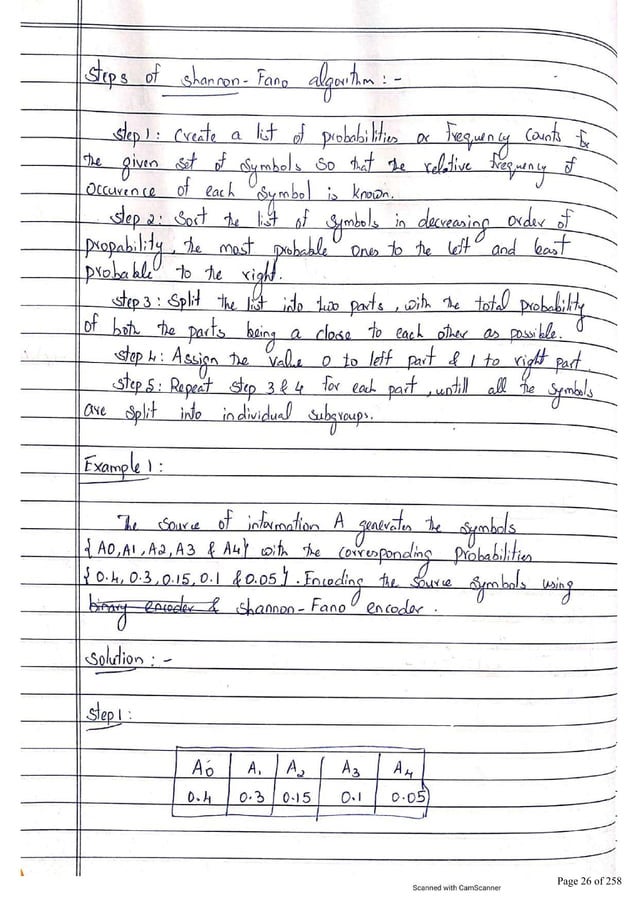 Steps of Shannon-Fano algorithm :-
Step 1: Create a list of probabilities or frequency counts for
the given set of symbols so that the relative frequency of
occurence of each symbol is known.
Step 2: Sort the list of symbols in decreasing order of
propability, the most probable ones to the left and least
probable to the right.
Step 3: Split the list into two parts, with the total probability
of both the parts being a close to each other as possible.
Step 4: Assign the value 0 to left part & 1 to right part.
Step 5: Repeat step 3 & 4 for each part, untill all the symbols
are split into individual subgroups.
Example 1:
The source of information A generates the symbols
{A0, A1, A2, A3 & A4} with the corresponding probabilities
{0.4, 0.3, 0.15, 0.1 & 0.05}. Encoding the source symbols using
binary encoder & Shannon-Fano encoder.
Solution :-
Step 1:
A0 A1 A2 A3 A4
0.4 0.3 0.15 0.1 0.05
Page 26 of 258
Scanned with CamScanner